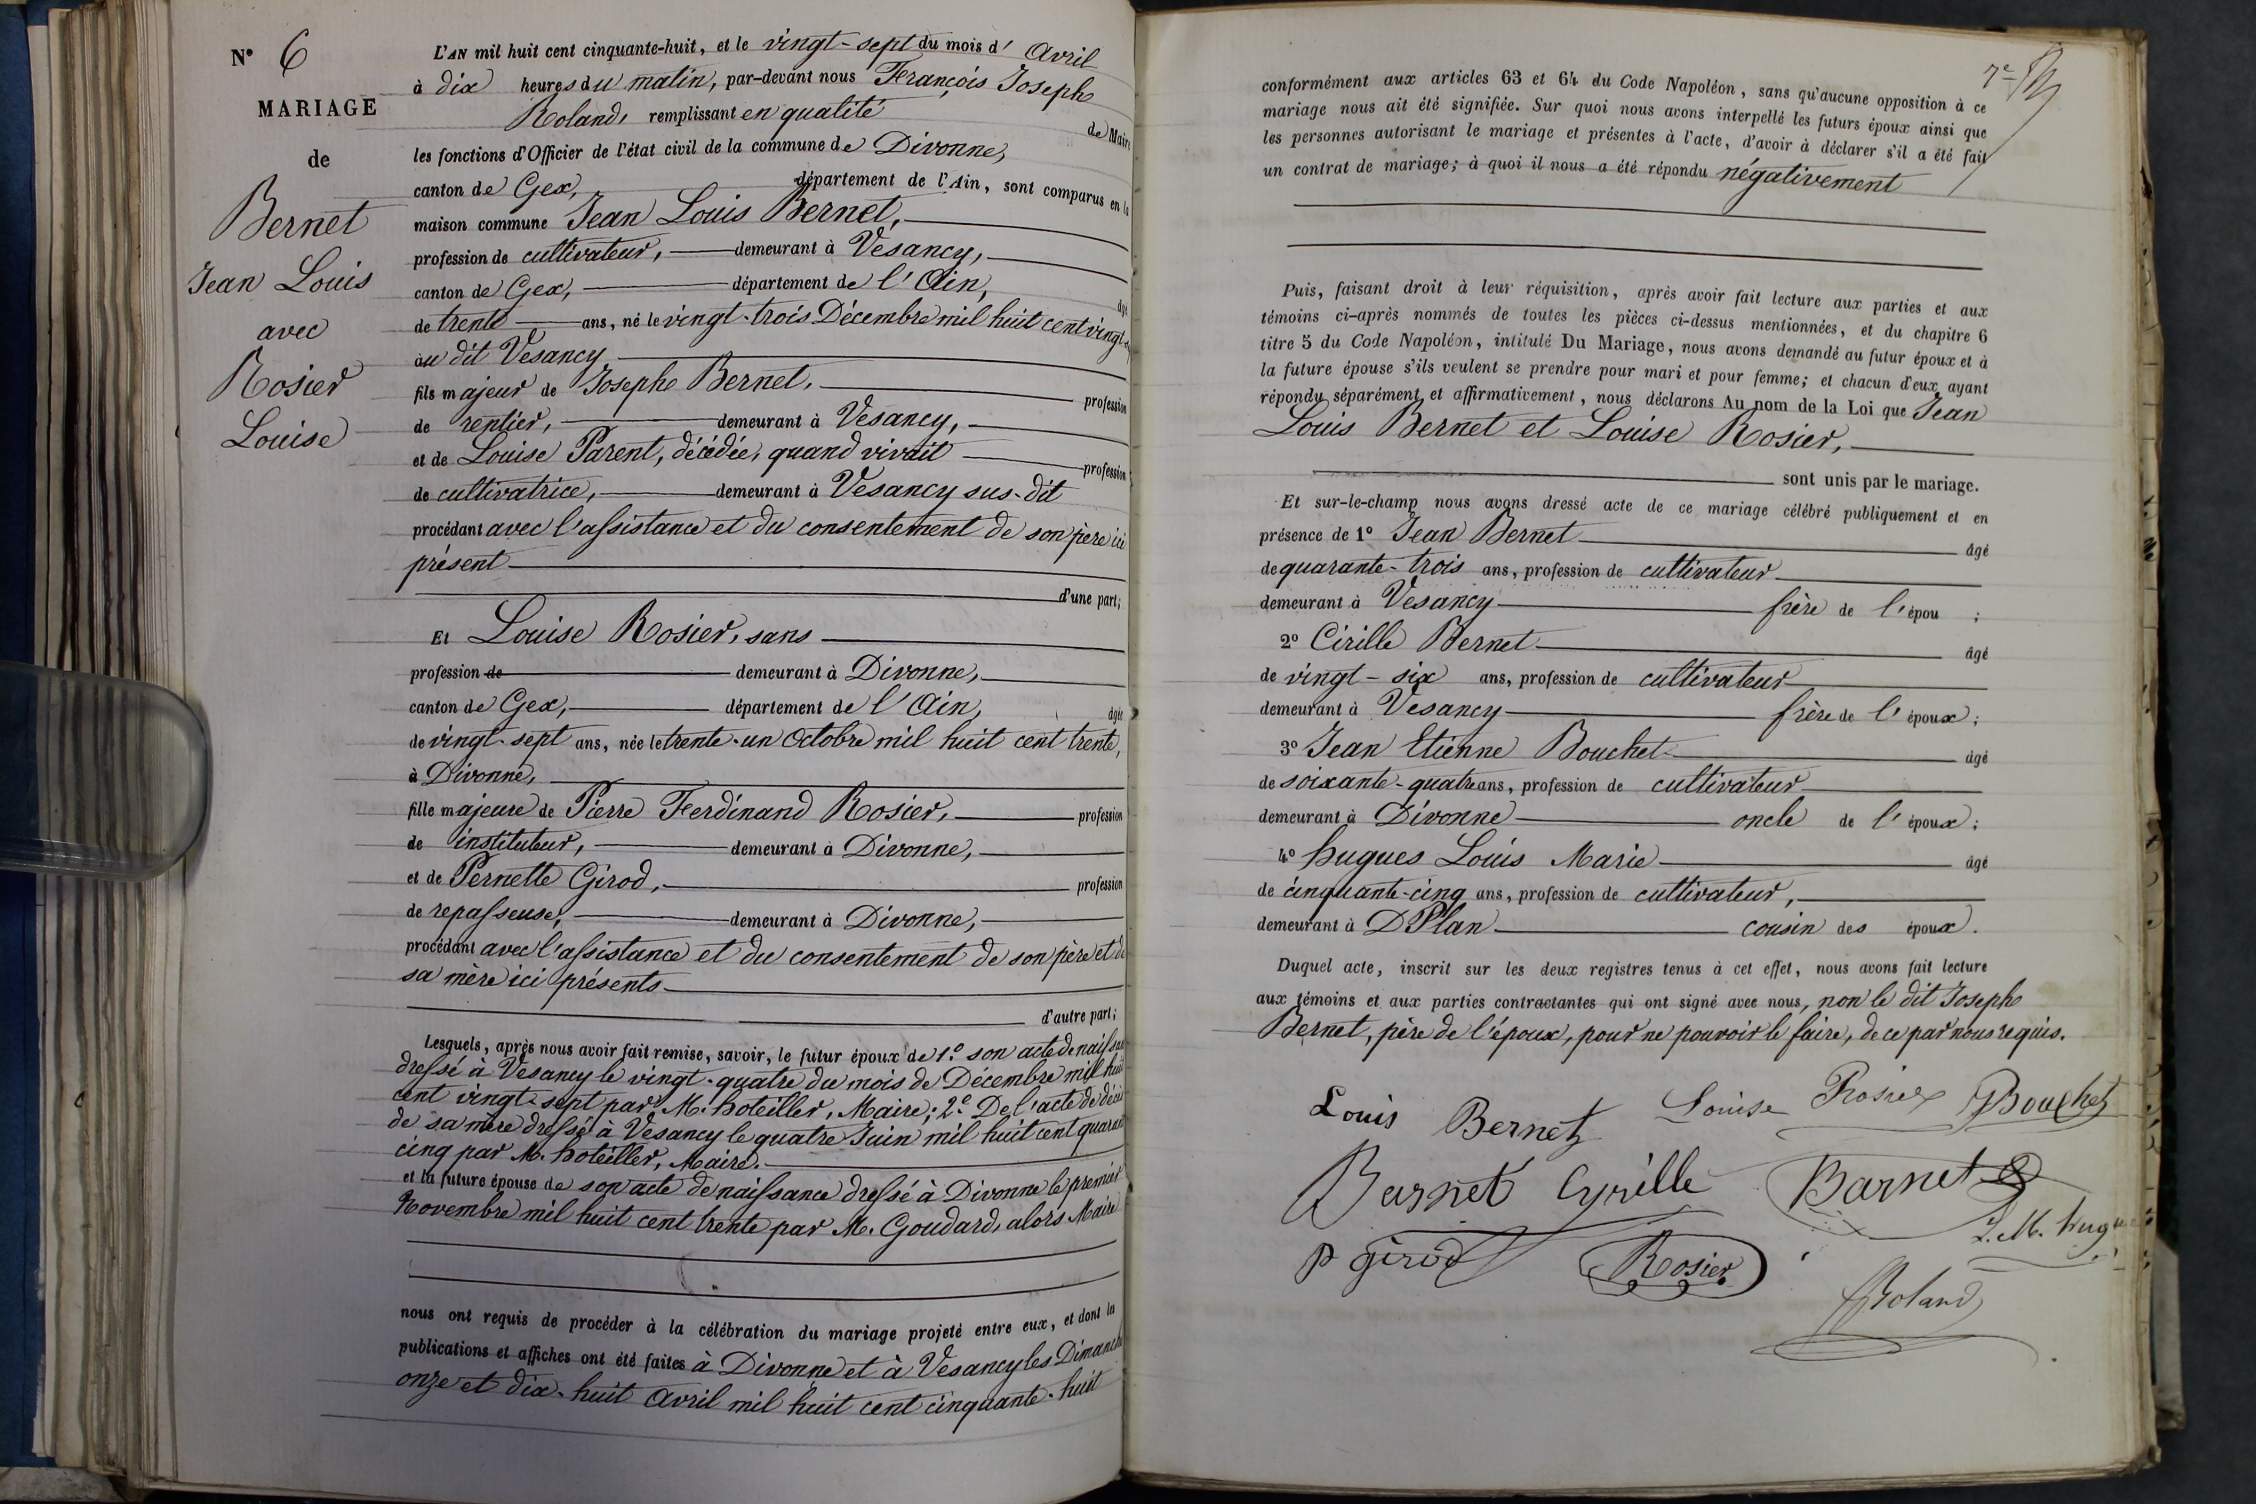 N° 6
MARIAGE
de
Bernet
Jean Louis
avec
Rosier
Louise
L'AN mil huit cent cinquante-huit, et le vingt-sept du mois d'Avril
à dix heures du matin, par-devant nous François Joseph
Roland, remplissant en qualité de Maire
les fonctions d'Officier de l'état civil de la commune de Divonne,
canton de Gex, département de l'Ain, sont comparus en la
maison commune Jean Louis Bernet,
profession de cultivateur, demeurant à Vesancy,
canton de Gex, département de l'Ain, âgé
de trente ans, né le vingt-trois Décembre mil huit cent vingt-
au dit Vesancy
fils majeur de Joseph Bernet, profession
de rentier, demeurant à Vesancy,
et de Louise Parent, décédée, quand vivait profession
de cultivatrice, demeurant à Vesancy sus-dit
procédant avec l'assistance et du consentement de son père ici
présent
d'une part;
Et Louise Rosier, sans
profession de demeurant à Divonne,
canton de Gex, département de l'Ain, âgée
de vingt-sept ans, née le trente-un Octobre mil huit cent trente,
à Divonne,
fille majeure de Pierre Ferdinand Rosier, profession
de instituteur, demeurant à Divonne,
et de Pernette Girod, profession
de repasseuse, demeurant à Divonne,
procédant avec l'assistance et du consentement de son père et de
sa mère ici présents
d'autre part;
Lesquels, après nous avoir fait remise, savoir, le futur époux de 1.° son acte de naissance
dressé à Vesancy le vingt-quatre du mois de Décembre mil huit
cent vingt-sept par M. hoteiller, Maire; 2.° De l'acte de décès
de sa mère dressé à Vesancy le quatre Juin mil huit cent quarante
cinq par M. hoteiller, Maire.
et la future épouse de son acte de naissance dressé à Divonne le premier
Novembre mil huit cent trente par M. Goudard, alors Maire
nous ont requis de procéder à la célébration du mariage projeté entre eux, et dont la
publications et affiches ont été faites à Divonne et à Vesancy les Dimanche
onze et dix-huit Avril mil huit cent cinquante-huit
7e
conformément aux articles 63 et 64 du Code Napoléon, sans qu'aucune opposition à ce
mariage nous ait été signifiée. Sur quoi nous avons interpellé les futurs époux ainsi que
les personnes autorisant le mariage et présentes à l'acte, d'avoir à déclarer s'il a été fait
un contrat de mariage; à quoi il nous a été répondu négativement
Puis, faisant droit à leur réquisition, après avoir fait lecture aux parties et aux
témoins ci-après nommés de toutes les pièces ci-dessus mentionnées, et du chapitre 6
titre 5 du Code Napoléon, intitulé Du Mariage, nous avons demandé au futur époux et à
la future épouse s'ils veulent se prendre pour mari et pour femme; et chacun d'eux ayant
répondu séparément et affirmativement, nous déclarons Au nom de la Loi que Jean
Louis Bernet et Louise Rosier,
sont unis par le mariage.
Et sur-le-champ nous avons dressé acte de ce mariage célébré publiquement et en
présence de 1° Jean Bernet âgé
de quarante-trois ans, profession de cultivateur
demeurant à Vesancy frère de l'épou ;
2° Cirille Bernet âgé
de vingt-six ans, profession de cultivateur
demeurant à Vesancy frère de l'époux;
3° Jean Etienne Bouchet âgé
de soixante-quatre ans, profession de cultivateur
demeurant à Divonne oncle de l'époux;
4° hugues Louis Marie âgé
de cinquante-cinq ans, profession de cultivateur,
demeurant à D Plan cousin des époux.
Duquel acte, inscrit sur les deux registres tenus à cet effet, nous avons fait lecture
aux témoins et aux parties contractantes qui ont signé avec nous, non le dit Joseph
Bernet, père de l'époux, pour ne pouvoir le faire, de ce par nous requis.
Louis Bernet Louise Rosier Bouchet
Barnet Cyrille Barnet
L. M. hugues
P girod Rosier
Roland